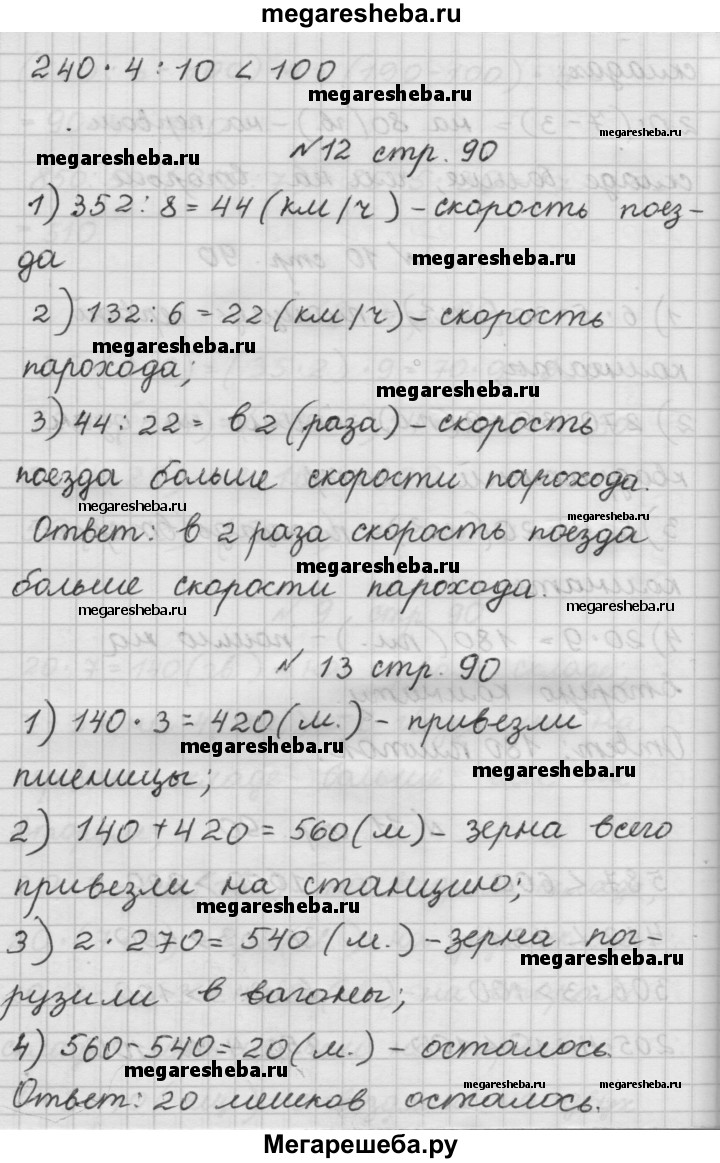 megaresheba.ru
240 · 4 : 10 < 100
megaresheba.ru
megaresheba.ru
megaresheba.ru
№12 стр. 90
1) 352 : 8 = 44 (км/ч) - скорость поез-
да
megaresheba.ru
2) 132 : 6 = 22 (км/ч) - скорость
megaresheba.ru
парохода;
megaresheba.ru
3) 44 : 22 = в 2 (раза) - скорость
поезда больше скорости парохода.
megaresheba.ru
megaresheba.ru
Ответ: в 2 раза скорость поезда
megaresheba.ru
больше скорости парохода.
megaresheba.ru
megaresheba.ru
№ 13 стр. 90
1) 140 · 3 = 420 (м.) - привезли
megaresheba.ru
megaresheba.ru
пшеницы;
2) 140 + 420 = 560 (м) - зерна всего
привезли на станцию;
megaresheba.ru
3) 2 · 270 = 540 (м.) - зерна пог-
megaresheba.ru
рузили в вагоны;
4) 560 - 540 = 20 (м.) - осталось.
megaresheba.ru
megaresheba.ru
megaresheba.ru
Ответ: 20 мешков осталось.
Мегарешеба.ру